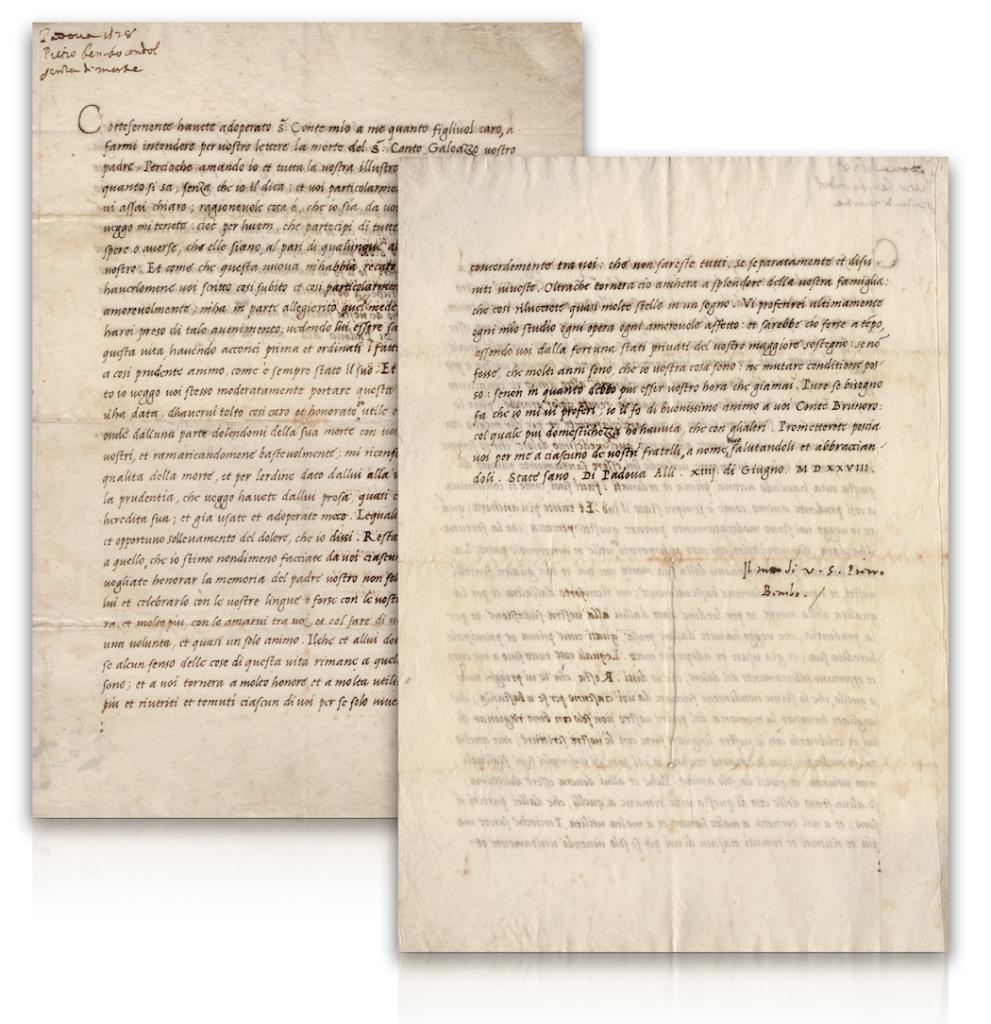 Padova 1528
Pietro Bembo condol
senza di morte
Cortesemente havete adoperato S. Conte mio a me quanto figliuol caro, a
farmi intendere per vostre lettere la morte del S. Conte Galeazzo vostro
padre. Percioche amando io et tutta la vostra illustre
quanto si sa, senza che io il dica; et voi particolarme
vi assai chiaro; ragionevole cosa è, che io sia da voi
veggo mi tenete: cioè per huom, che partecipi di tutte
spere o averse, che elle siano, al pari di qualunque al
vostro. Et come che questa nuova m'habbia recato
haverlemene voi scritto così subito et così particolarmen
amorevolmente; mha in parte allegierito quel mede
harei preso di tale avenimento; vedendo lui essere sa
questa vita, havendo acconci prima et ordinati i fatti
a così prudente animo, come è sempre stato il suo. Et
to io veggo voi stesso moderatamente portare questa
vha data, dhavervi tolto così caro et honorato utile e
onde dalluna parte dolendomi della sua morte con voi
vostri, et ramaricandomene bastevolmente; mi riconf
qualità della morte, et per lordine dato dallui alla
la prudentia, che veggo havete dallui presa, quasi
heredita sua; et già usate et adoperate meco. Lequali
et opportuno sollevamento del dolore, che io dissi. Resta
a quello, che io stimo nondimeno facciate da voi ciascun
vogliate honorar la memoria del padre vostro non sol
lui et celebrarlo con le vostre lingue e forse con le vostr
ra, et molto più, con lo amarvi tra voi, et col fare di
una volunta, et quasi un solo animo. Ilche et allui de
se alcun senso delle cose di questa vita rimane a quel
sono; et a voi tornera a molto honore et a molta utili
più et riveriti et temuti ciascun di voi per se solo vive
concordemente tra voi: che non fareste tutti, se separatamente et disu
niti viveste. Oltrache tornera ciò anchora a splendore della vostra famiglia:
che così rilucerete quasi molte stelle in un segno. Vi profferirei ultimamente
ogni mio studio ogni opera ogni amorevole affetto: et sarebbe ciò forse a tepo,
essendo voi dalla fortuna stati privati del vostro maggiore sostegno: se nō
fosse, che molti anni sono, che io vostra cosa sono: ne mutare conditione pos
so: senon in quanto debbo più esser vostro hora che giamai. Pure se bisogno
fa che io mi vi proferi: io il fo di buonissimo animo a voi Conte Brunoro:
col quale più domestichezza ho havuta, che con glialtri. Prometterete poscia
voi per me a ciascuno de vostri fratelli, a nome mio salutandoli et abbraccian-
doli. State sano. Di Padova Alli. xiiij. di Giugno. M D XXVIII.
Il di V. S. Pietro
Bembo.